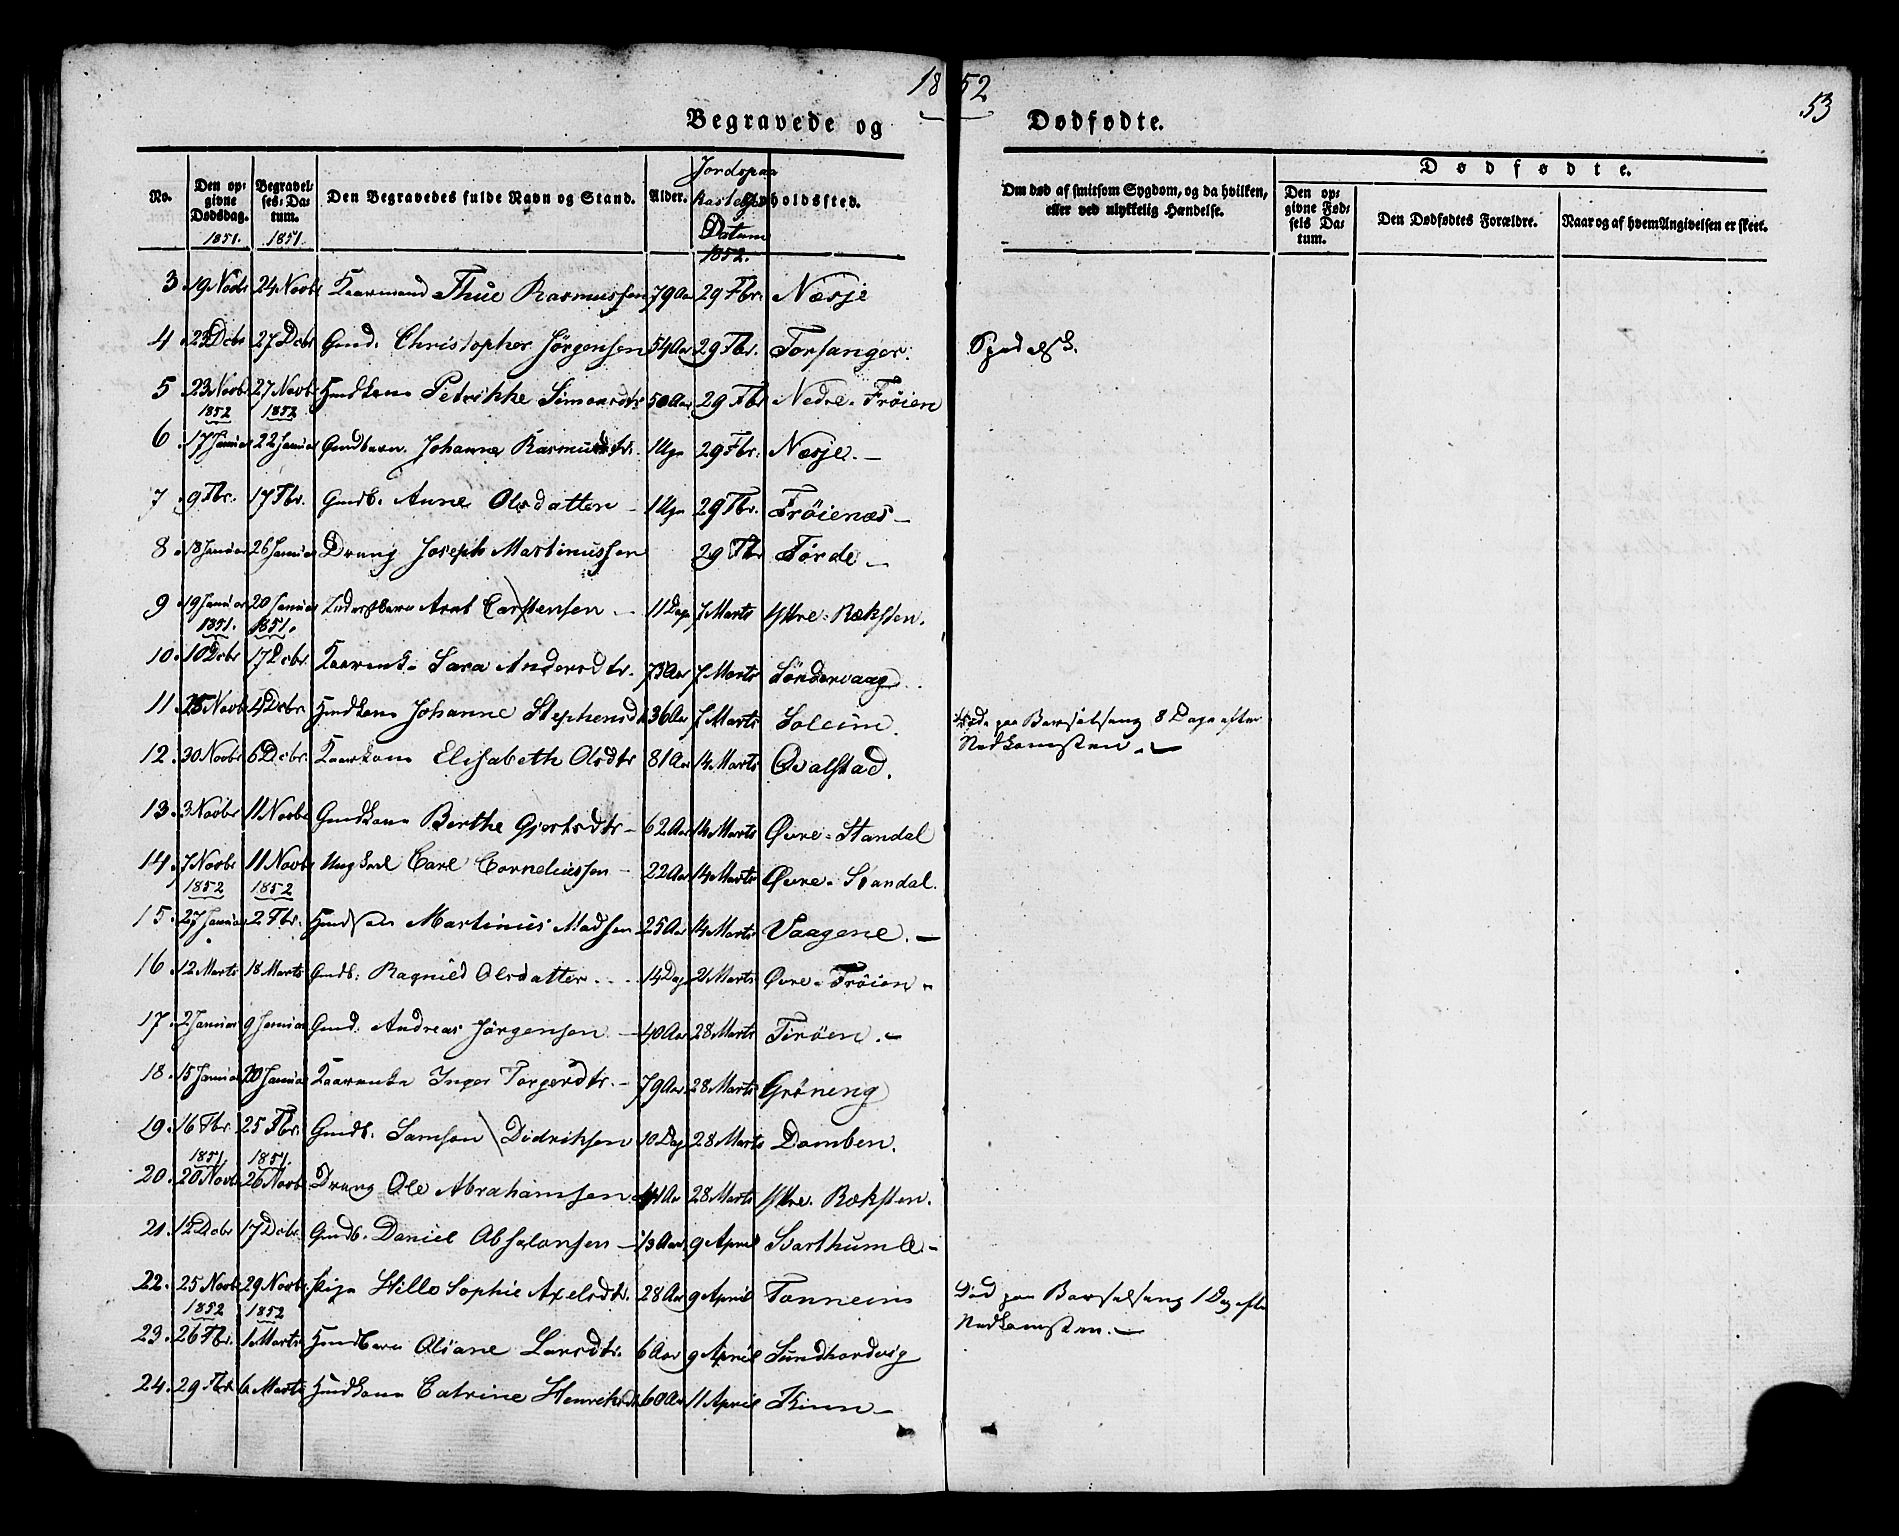 1852
53
Begravede og Dødfødte.
No. Den opgivne Dødsdag. 1851. Begravelses-Datum. 1851. Den Begravedes fulde Navn og Stand. Alder. Jordspaa Kastelses Datum 1852. Opholdssted. Om død af smitsom Sygdom, og da hvilken, eller ved ulykkelig Hændelse. Dødfødte. Den opgivne Fødsels Datum. Den Dødfødtes Forældre. Naar og af hvem Angivelsen er skeet.
3 19 Novbr 24 Novbr Kaarmand Thue Rasmussen 79 Aar 29 Fbr. Næsje
4 22 Dcbr 27 Dcbr Gmd. Christopher Jørgensen 54 Aar 29 Fbr. Torsanger. Spedalsk.
5 23 Novbr 27 Novbr Hmdkone Petrikke Simonsdtr 50 Aar 29 Fbr Nedre-Frøien
1852 1852
6 17 Januar 22 Januar Gmdbarn Johanne Rasmusdtr. 1 Uge 29 Fbr. Næsje. —
7 9 Fbr. 17 Fbr. Gmdb. Anne Olsdatter — 1 Uge 29 Fbr. Frøienæs —
8 18 Januar 26 Januar Dreng Joseph Martinussen 29 Fbr Førde —
9 19 Januar 20 Januar Inderstbarn Arnt Carstensen — 11 Dage 7 Marts Ytre-Ræksten.
1851. 1851.
10. 10 Dcbr 17 Dcbr. Kaarenke Sara Andersdtr. 75 Aar 7 Marts Søndervaag.
11. 25 Novb 4 Dcbr. Hmdkone Johanne Stephensdtr 36 Aar 7 Marts Soleim. Døde paa Barselseng 8 Dage efter Nedkomsten. —
12. 30 Novbr 6 Dcbr. Kaarkone Elisabeth Olsdtr 81 Aar 14 Marts Qvalstad.
13. 3 Novbr 11 Novbr Gmdkone Berthe Gjertsdtr — 62 Aar 14 Marts Øvre-Standal
14. 7 Novbr 11 Novbr Ungkarl Carl Corneliussen — 22 Aar 14 Marts Øvre-Standal.
1852 1852
15. 27 Januar 2 Fbr. Hmdsøn Martinus Madsen 25 Aar 14 Marts Vaagene. —
16. 12 Marts 18 Marts Gmdb. Ragnild Olsdatter 14 Dage 21 Marts Øvre-Frøien
17. 2 Januar 9 Januar Gmd. Andreas Jørgensen — 40 Aar 28 Marts Tirøen. —
18. 15 Januar 20 Januar Kaarenke Inger Torgersdtr. — 79 Aar 28 Marts Grøneng
19. 16 Fbr. 25 Fbr. Gmdb. Samson Didriksen 10 Dage 28 Marts Domben.
1851 1851.
20. 20 Novbr 26 Novbr Dreng Ole Abrahamsen 28 Marts Ytre-Ræksten.
21. 12 Dcbr 17 Dcbr Gmdb. Daniel Absalonsen — 13 Aar 9 April Svarthumle —
22. 25 Novbr 29 Novbr. Pige Hille Sophie Axelsdtr. 28 Aar 9 April Tonneim Død paa Barselseng 1 Dag efter Nedkomsten. —
1852 1852
23. 26 Fbr. 1 Marts Hmdbarn Oliane Larsdtr. 6 Aar 9 April Sundhordvig
24. 29 Fbr. 6 Marts Hmdkone Catrine Henriksdtr 60 Aar 11 April Kinn —